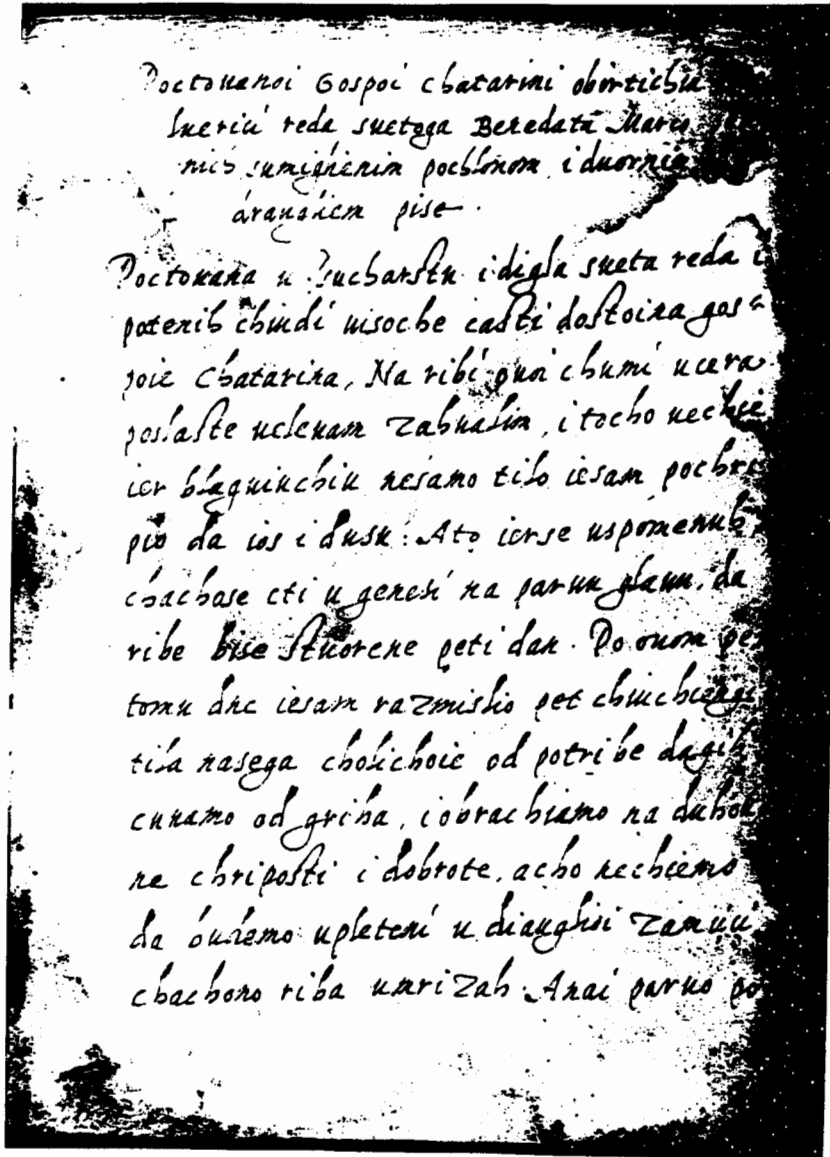 Poctouanoi Gospoi Chatarini obirtichiu
lueriĉi reda suetoga Benedata Marco
nich sumignenim pochlonom i duornim
arauaniem pise.
Poctouana u i digla sueta reda i
potenih chiudi uisoche casti dostoina gos=
poie Chatarina, Na ribi puoi chumi ucera
poslaste uelevam zahualim, i tocho uechie
ier blaguiuchiu nesamo tilo iesam pochri
pio da ios i dusu: Ato ierse uspomenuh
chachose cti u genesi na paruu glauu, da
ribe bise stuorene peti dan. Po ouom pe
tomu dne iesam razmislio pet chiuchiengi
tila nasega cholichoie od potribe dagih
cuuamo od griha, i obrachiamo na duhou
ne chriposti i dobrote, acho nechiemo
da budemo upleteni u diauglisi zamuci
chachono riba umrizah. Anai paruo po